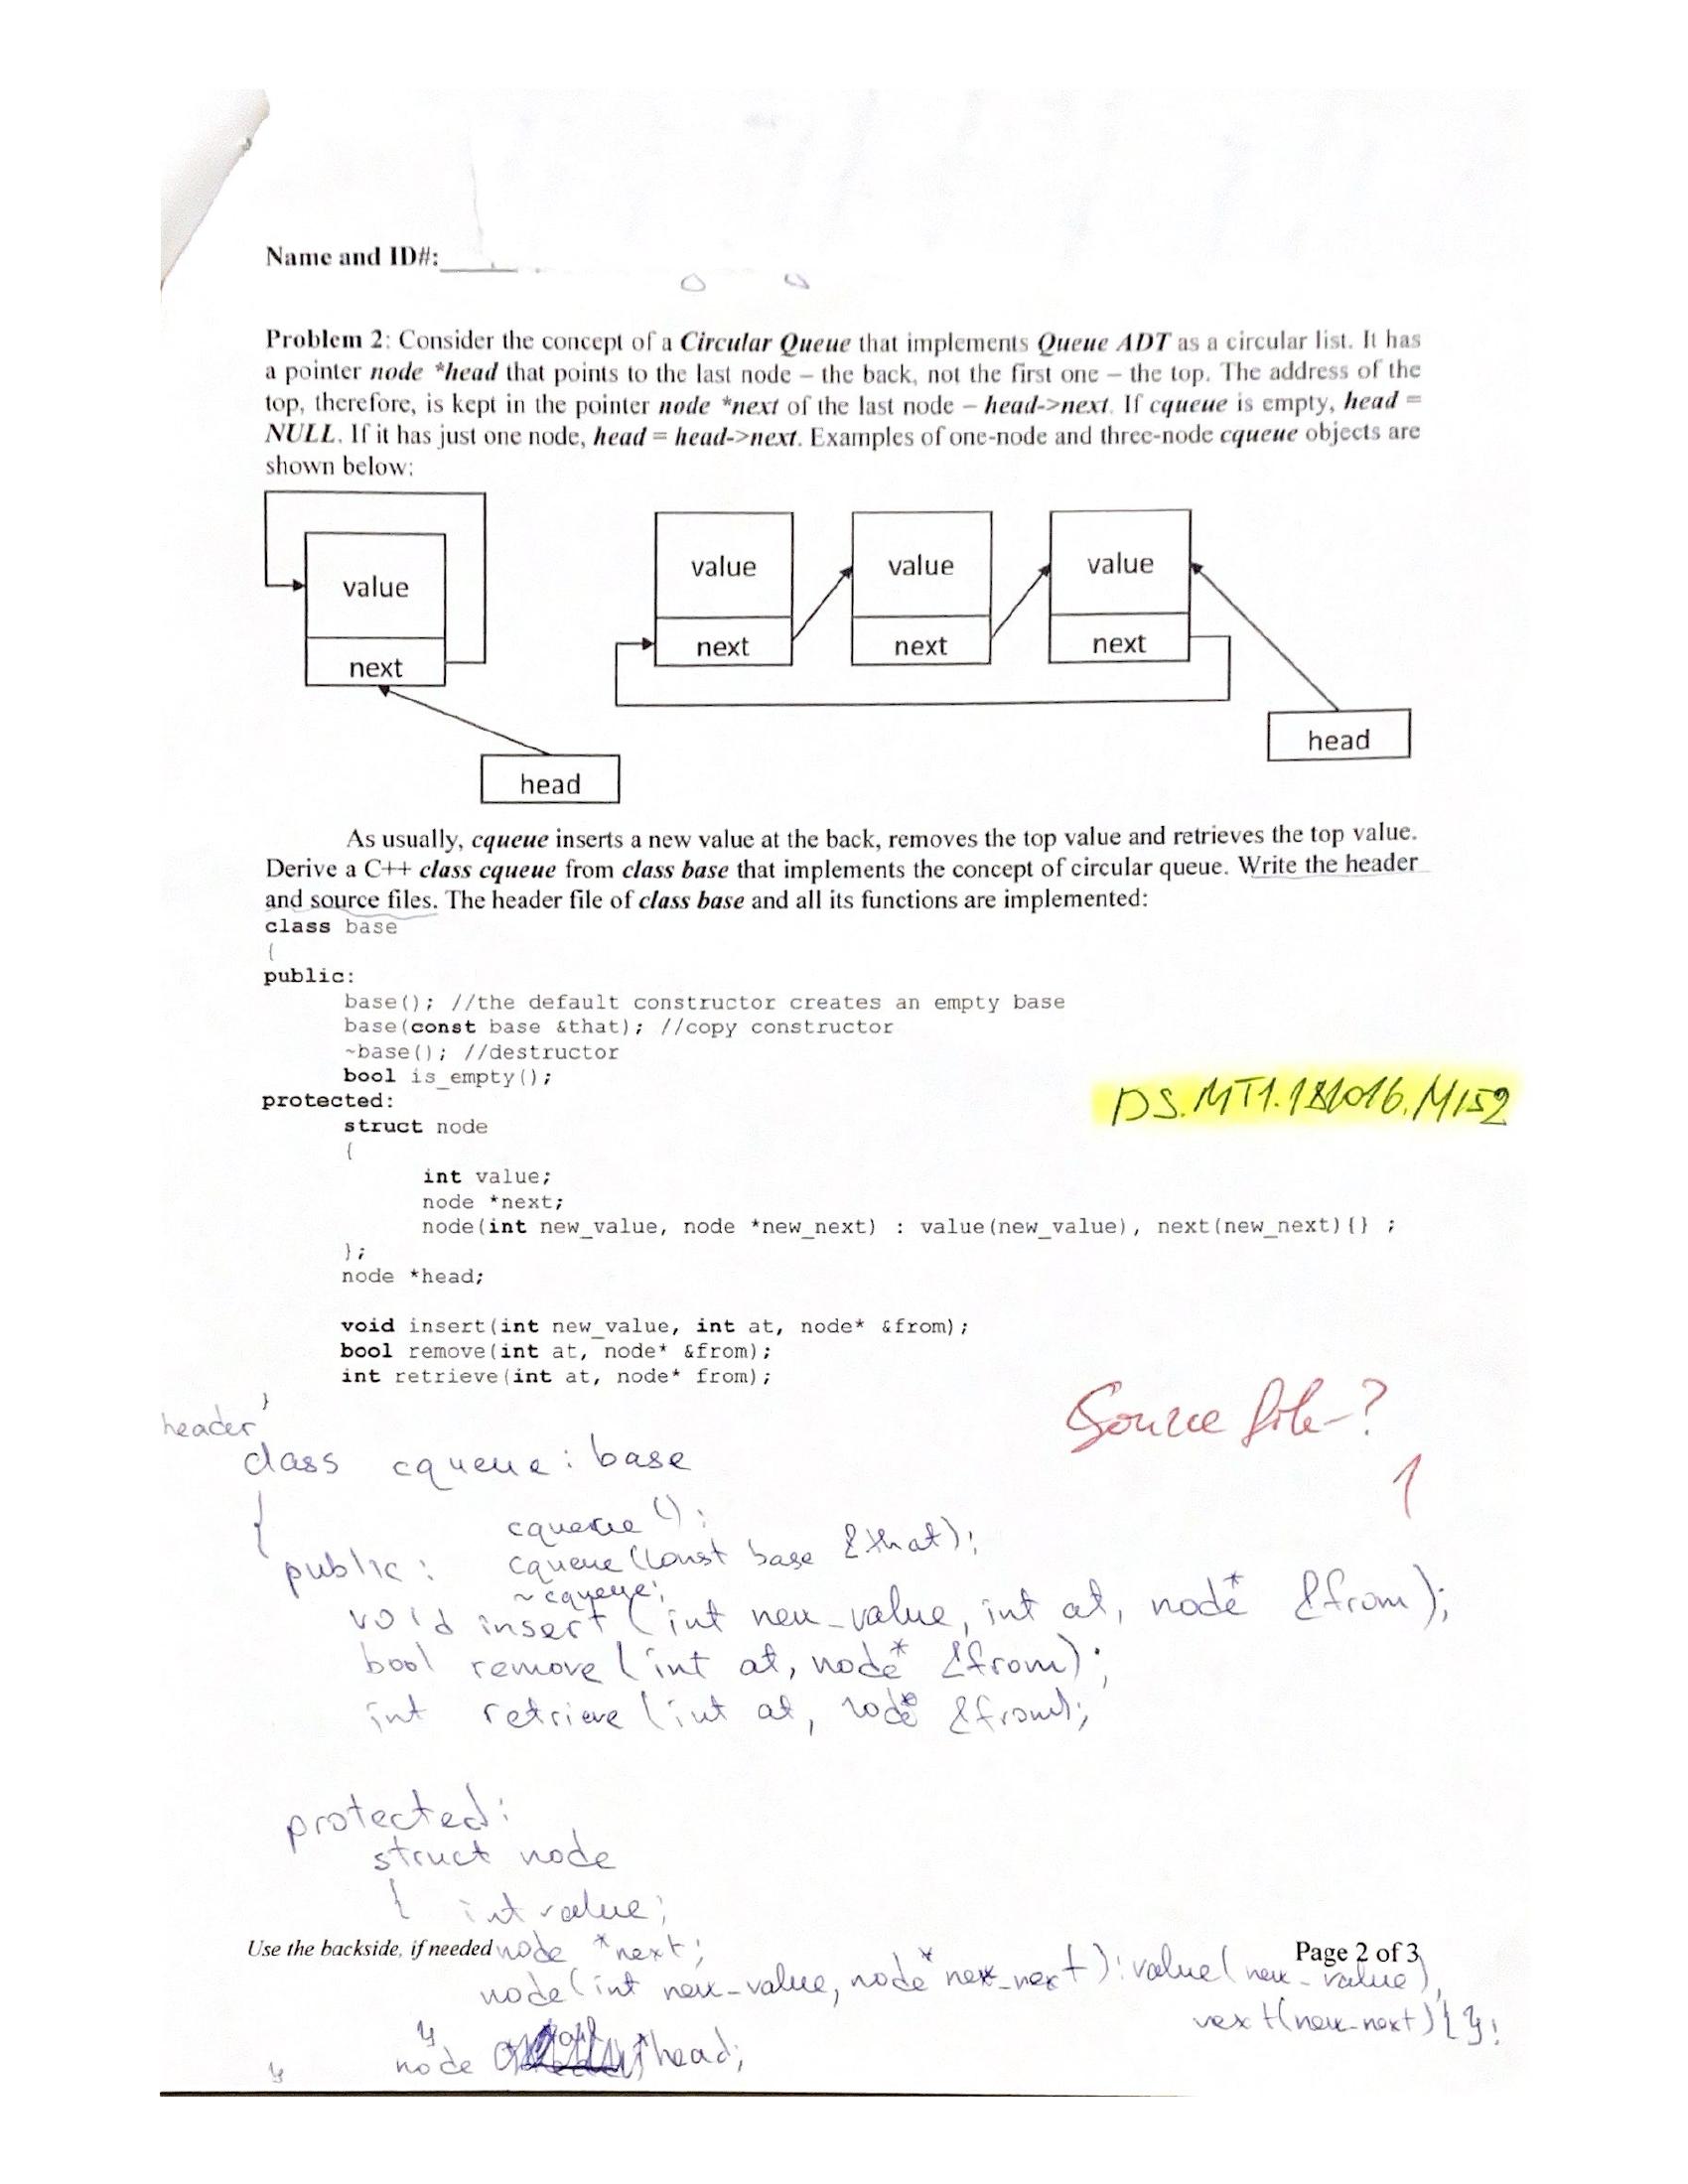 Name and ID#:
Problem 2: Consider the concept of a Circular Queue that implements Queue ADT as a circular list. It has
a pointer node *head that points to the last node – the back, not the first one – the top. The address of the
top, therefore, is kept in the pointer node *next of the last node – head->next. If cqueue is empty, head =
NULL. If it has just one node, head = head->next. Examples of one-node and three-node cqueue objects are
shown below:
value
next
head
value
next
value
next
value
next
head
As usually, cqueue inserts a new value at the back, removes the top value and retrieves the top value.
Derive a C++ class cqueue from class base that implements the concept of circular queue. Write the header
and source files. The header file of class base and all its functions are implemented:
class base
{
public:
base(); //the default constructor creates an empty base
base(const base &that); //copy constructor
~base(); //destructor
bool is_empty();
protected:
DS.MT1.181016.M152
struct node
{
int value;
node *next;
node(int new_value, node *new_next) : value(new_value), next(new_next){} ;
};
node *head;
void insert(int new_value, int at, node* &from);
bool remove(int at, node* &from);
int retrieve(int at, node* from);
}
Source file-?
1
header
class cqueue : base
{
cqueue();
public: cqueue(const base &that);
~cqueue;
void insert (int new_value, int at, node* &from);
bool remove (int at, node* &from);
int retrieve (int at, node* &from);
protected:
struct node
{ int value;
Use the backside, if needed
Page 2 of 3
node *next;
node(int new_value, node* new_next): value(new_value),
next(new_next){};
}
node *head;
}